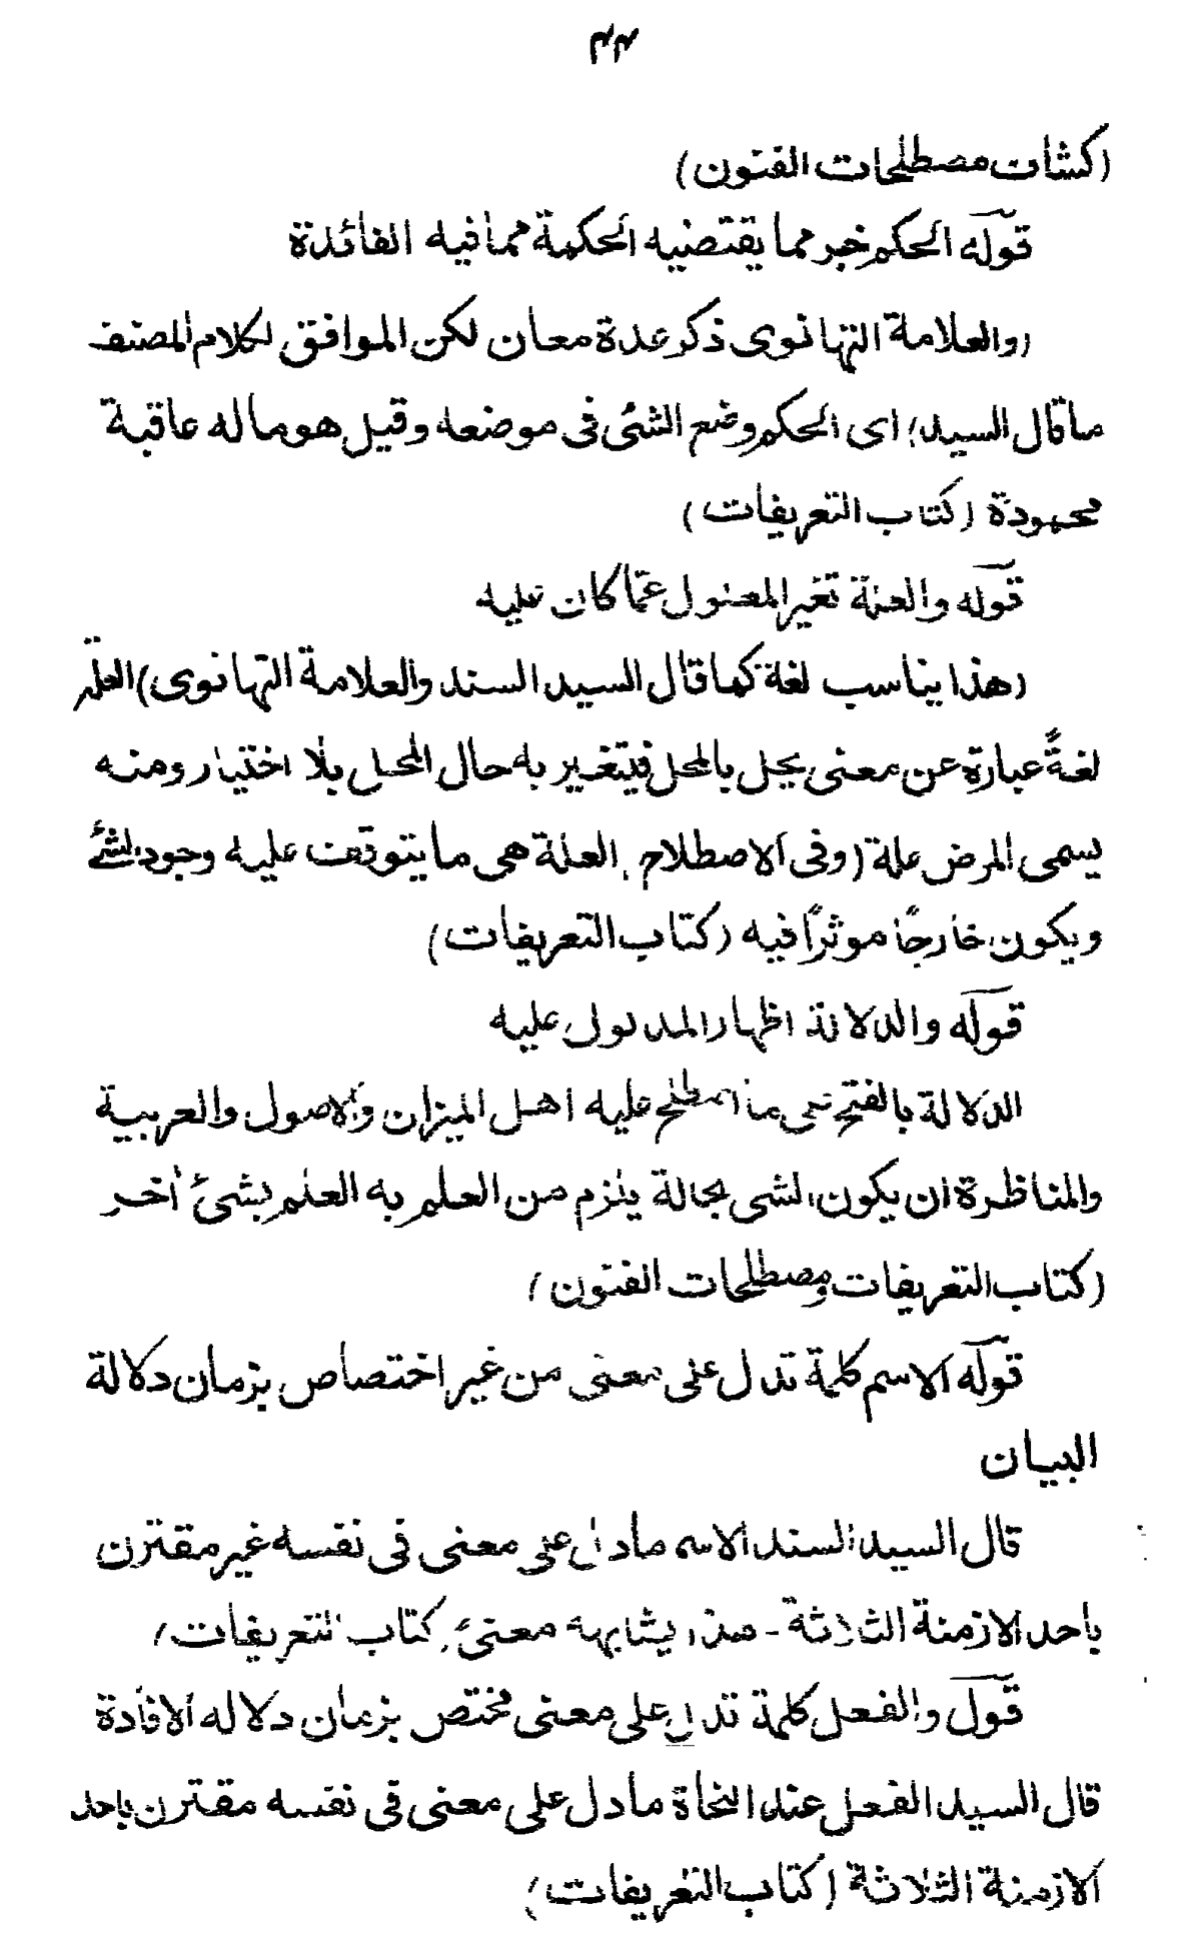 (كشاف مصطلحات الفنون)
قوله الحكم خبر مما يقتضيه الحكمة مما فيه الفائدة
(والعلامة التهانوى ذكر عدة معان لكن الموافق لكلام المصنف
ما قال السيد؛ اى الحكم وضع الشئى فى موضعه وقيل هو ما له عاقبة
محمودة (كتاب التعريفات)
قوله والعلة تغير المعلول عمّا كان عليه
(هذا يناسب لغة كما قال السيد السند والعلامة التهانوى) العلة
لغةً عبارة عن معنى يحل بالمحل فيتغير به حال المحل بلا اختيار ومنه
يسمى المرض علة (وفى الاصطلاح العلة هى ما يتوقف عليه وجود الشئ
ويكون خارجًا موثرًا فيه (كتاب التعريفات)
قوله والدلالة اظهار المدلول عليه
الدلالة بالفتح على ما اصطلح عليه اهل الميزان والاصول والعربية
والمناظرة ان يكون الشى بحالة يلزم من العلم به العلم بشئ أخر
(كتاب التعريفات ومصطلحات الفنون)
قوله الاسم كلمة تدل على معنى من غير اختصاص بزمان دلالة
البيان
قال السيد السند الاسم ما دل على معنى فى نفسه غير مقترن
باحد الازمنة الثلاثة - هذا يشابهه معنىً (كتاب التعريفات)
قول والفعل كلمة تدل على معنى مختص بزمان دلاله الافادة
قال السيد الفعل عند النحاة ما دل على معنى فى نفسه مقترن باحد
الازمنة الثلاثة (كتاب التعريفات)